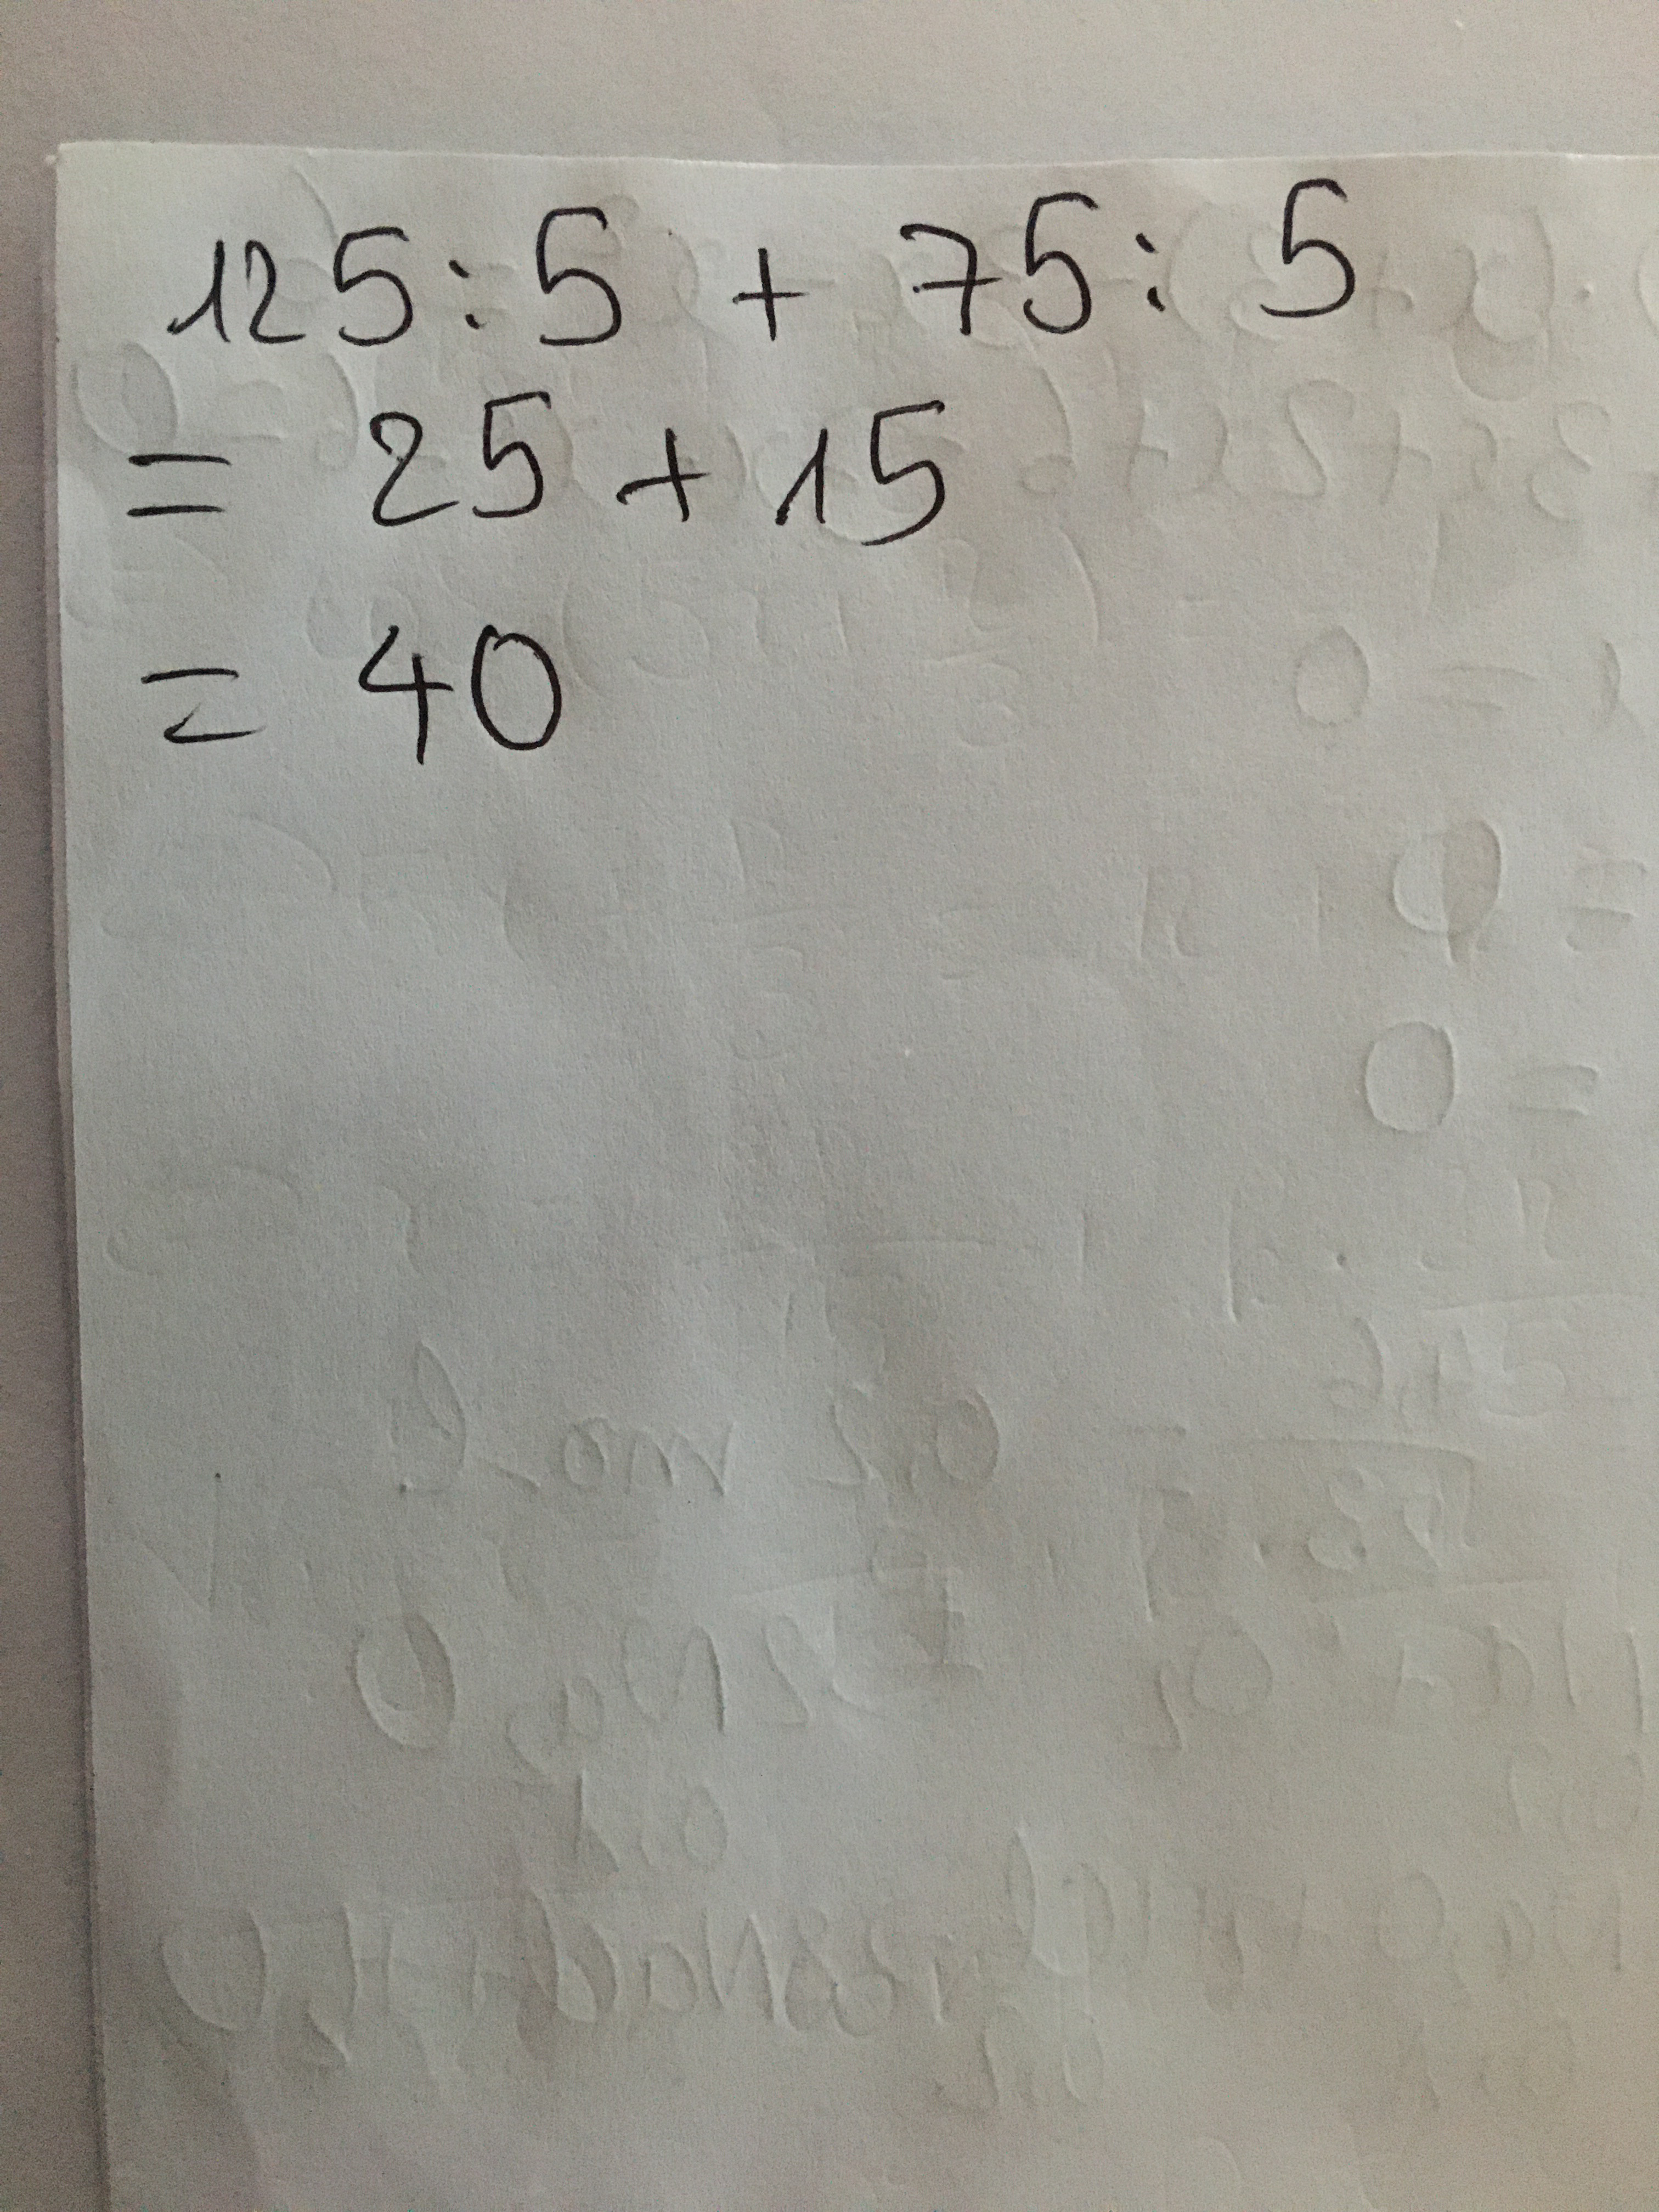 125 : 5 + 75 : 5
= 25 + 15
= 40